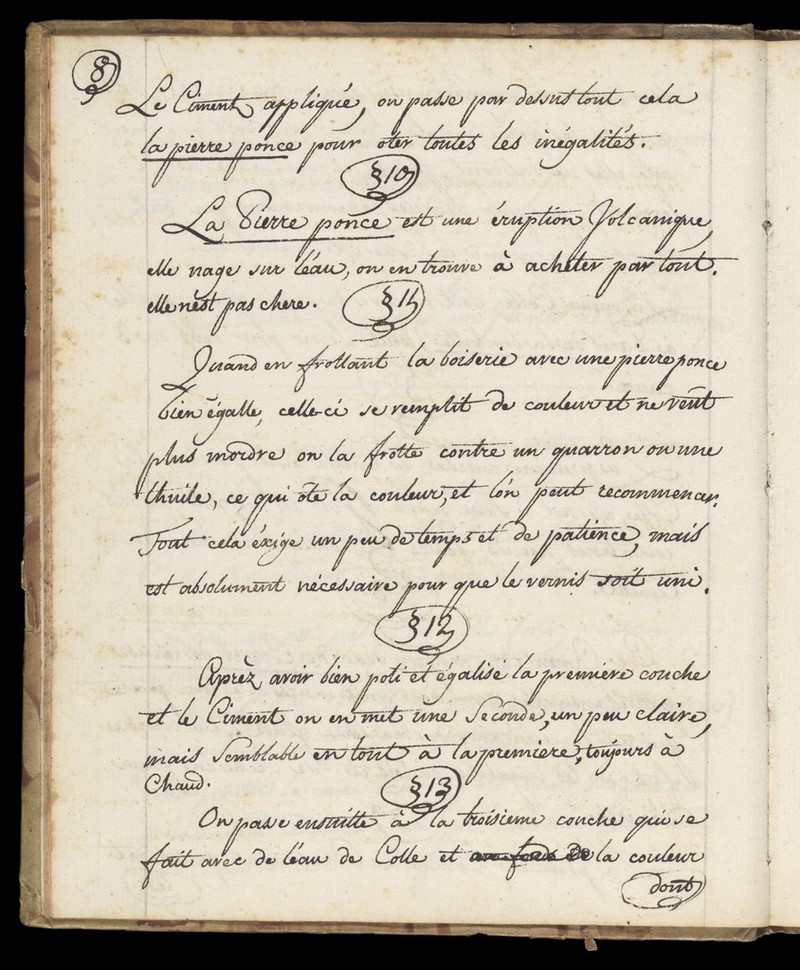 8
Le Ciment appliqué, on passe par dessus tout cela
la pierre ponce pour ôter toutes les inégalités.
§10
La Pierre ponce est une éruption Volcanique,
elle nage sur l'éau, on en trouve à achêter par tout.
elle n'est pas chere. §11
Quand en frottant la boiserie avec une pierre ponce
bien égalle, celle-ci se remplit de couleur et ne veut
plus mordre on la frotte contre un quarron ou une
thuile, ce qui ôte la couleur, et l'on peut recommencer.
Tout cela éxige un peu de temps et de patience, mais
est absolument nécessaire pour que le vernis soit uni.
§12
Aprèz avoir bien poli et égalisé la premiere couche
et le Ciment on en met une Seconde, un peu claire,
mais Semblable en tout à la premiere, toujours à
Chaud.
§13
On passe ensuitte à la troisieme couche qui se
fait avec de l'éau de Colle et la couleur
dont